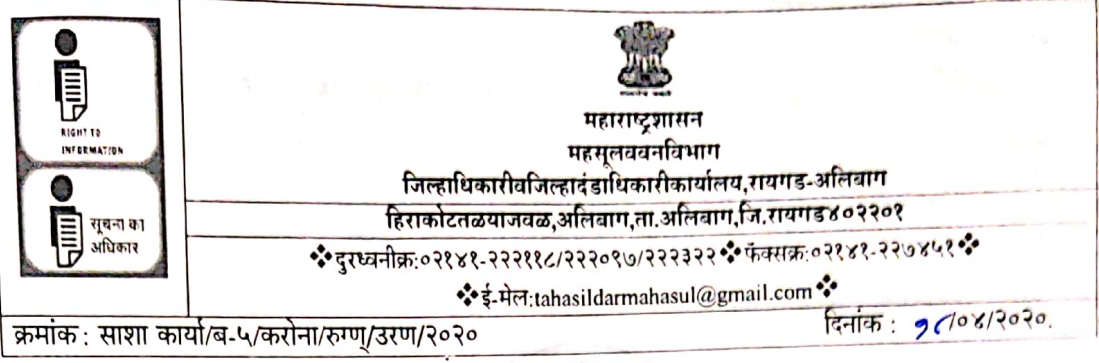 RIGHT TO
INFORMATION
सूचना का
अधिकार
महाराष्ट्रशासन
महसूलववनविभाग
जिल्हाधिकारीवजिल्हादंडाधिकारीकार्यालय,रायगड-अलिबाग
हिराकोटतळयाजवळ,अलिबाग,ता.अलिबाग,जि.रायगड४०२२०१
❖दुरध्वनीक्र:०२१४१-२२२११८/२२२०९७/२२२३२२❖फॅक्सक्र:०२१४१-२२७४५१❖
❖ई-मेल:tahasildarmahasul@gmail.com❖
क्रमांक : साशा कार्या/ब-५/करोना/रुग्ण/उरण/२०२० दिनांक : १८/०४/२०२०.